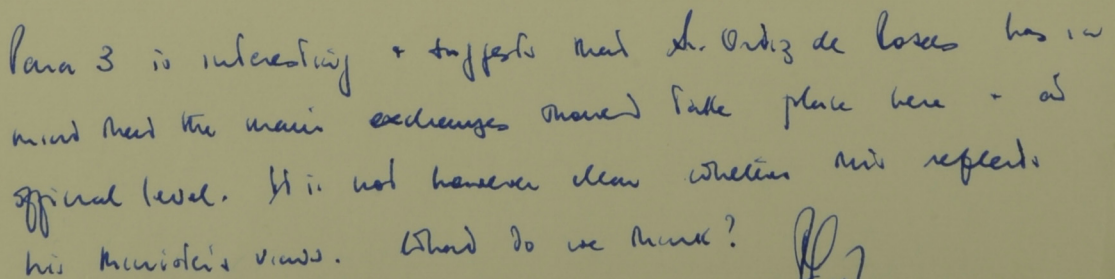 Para 3 is interesting + suggests that Sr. Ortiz de Rosas has in
mind that the main exchanges should take place here - at
official level. It is not however clear whether this reflects
his Minister's views. What do we think?